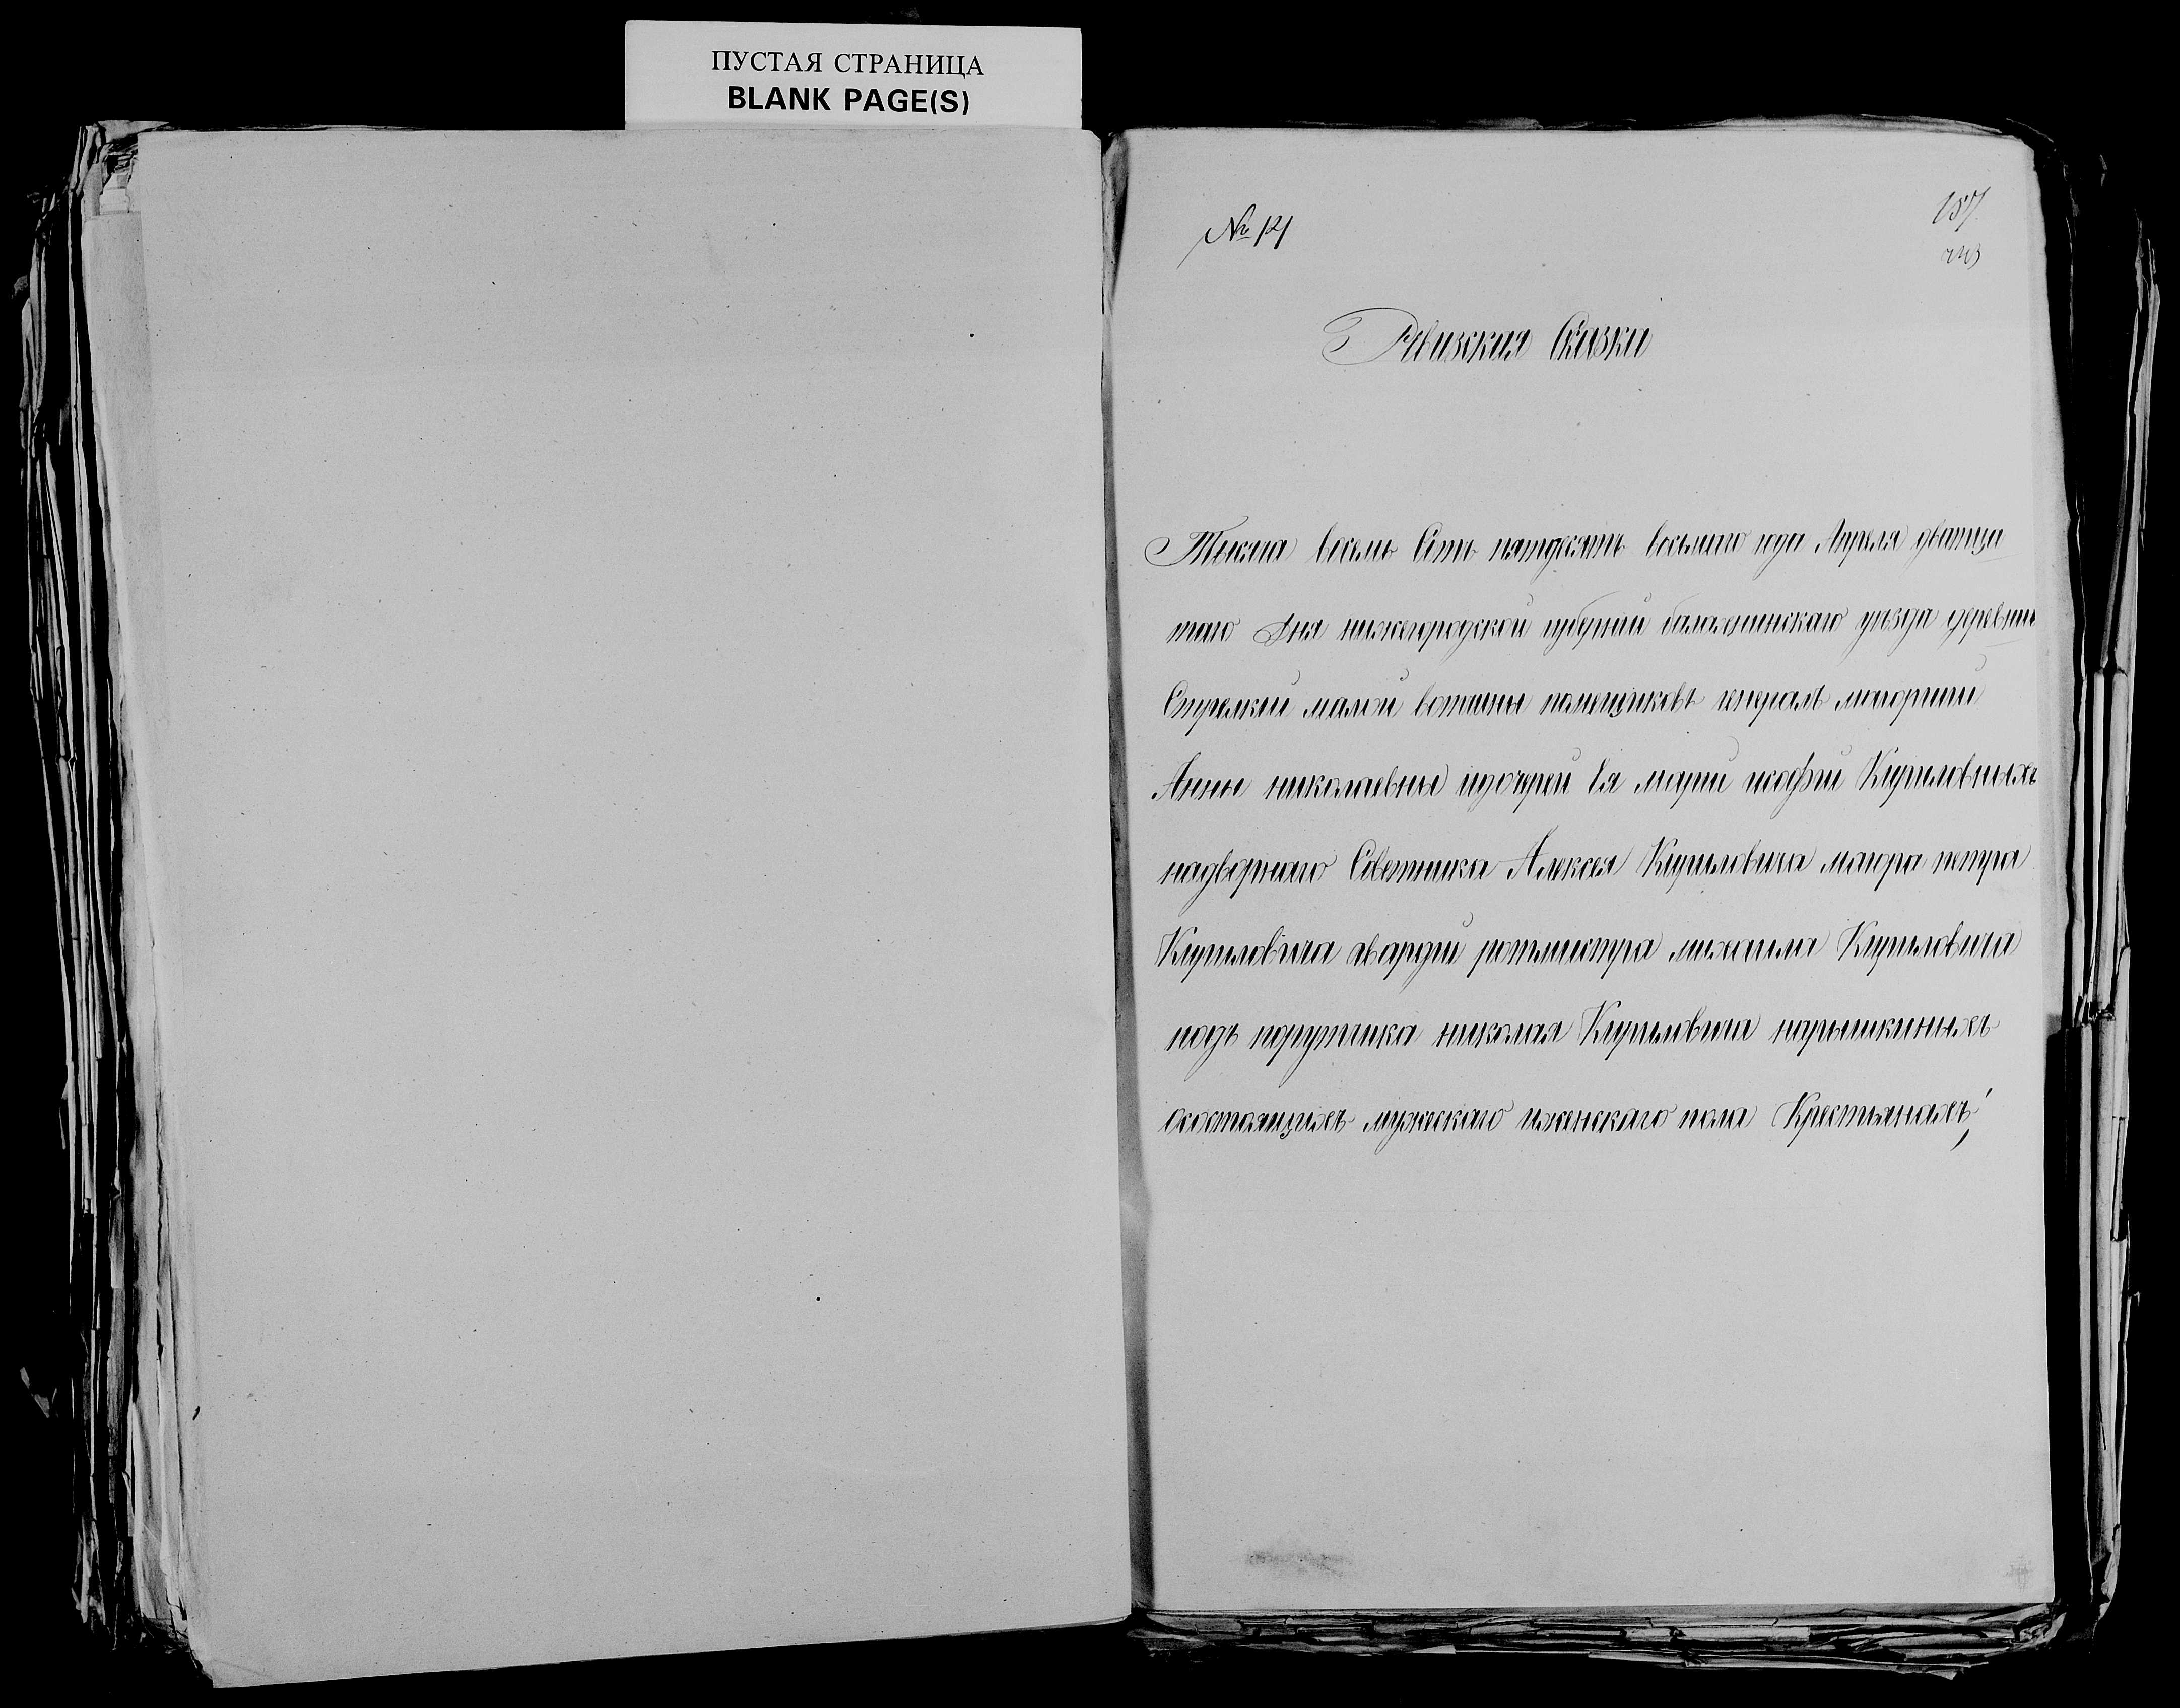 ПУСТАЯ СТРАНИЦА
BLANK PAGE(S)
№ 121
Ревизская Сказка
Тысяча восемь Сотъ пятдесятъ восьмаго года Апреля дватца
таго Дня нижегородской губерніи балахнинскаго уезда деревни
Стрелки малой вотчины помещиковъ генералъ маіорши
Анны николаевны идочерей Ея маріи исофіи Кириловныхъ
надворнаго Советника Алексея Кириловича маіора петра
Кириловича гвардіи ротмистра михаила Кириловича
подъ порутчика николая Кириловича нарышкиныхъ
осостоящихъ мужескаго иженскаго пола Крестьянахъ;